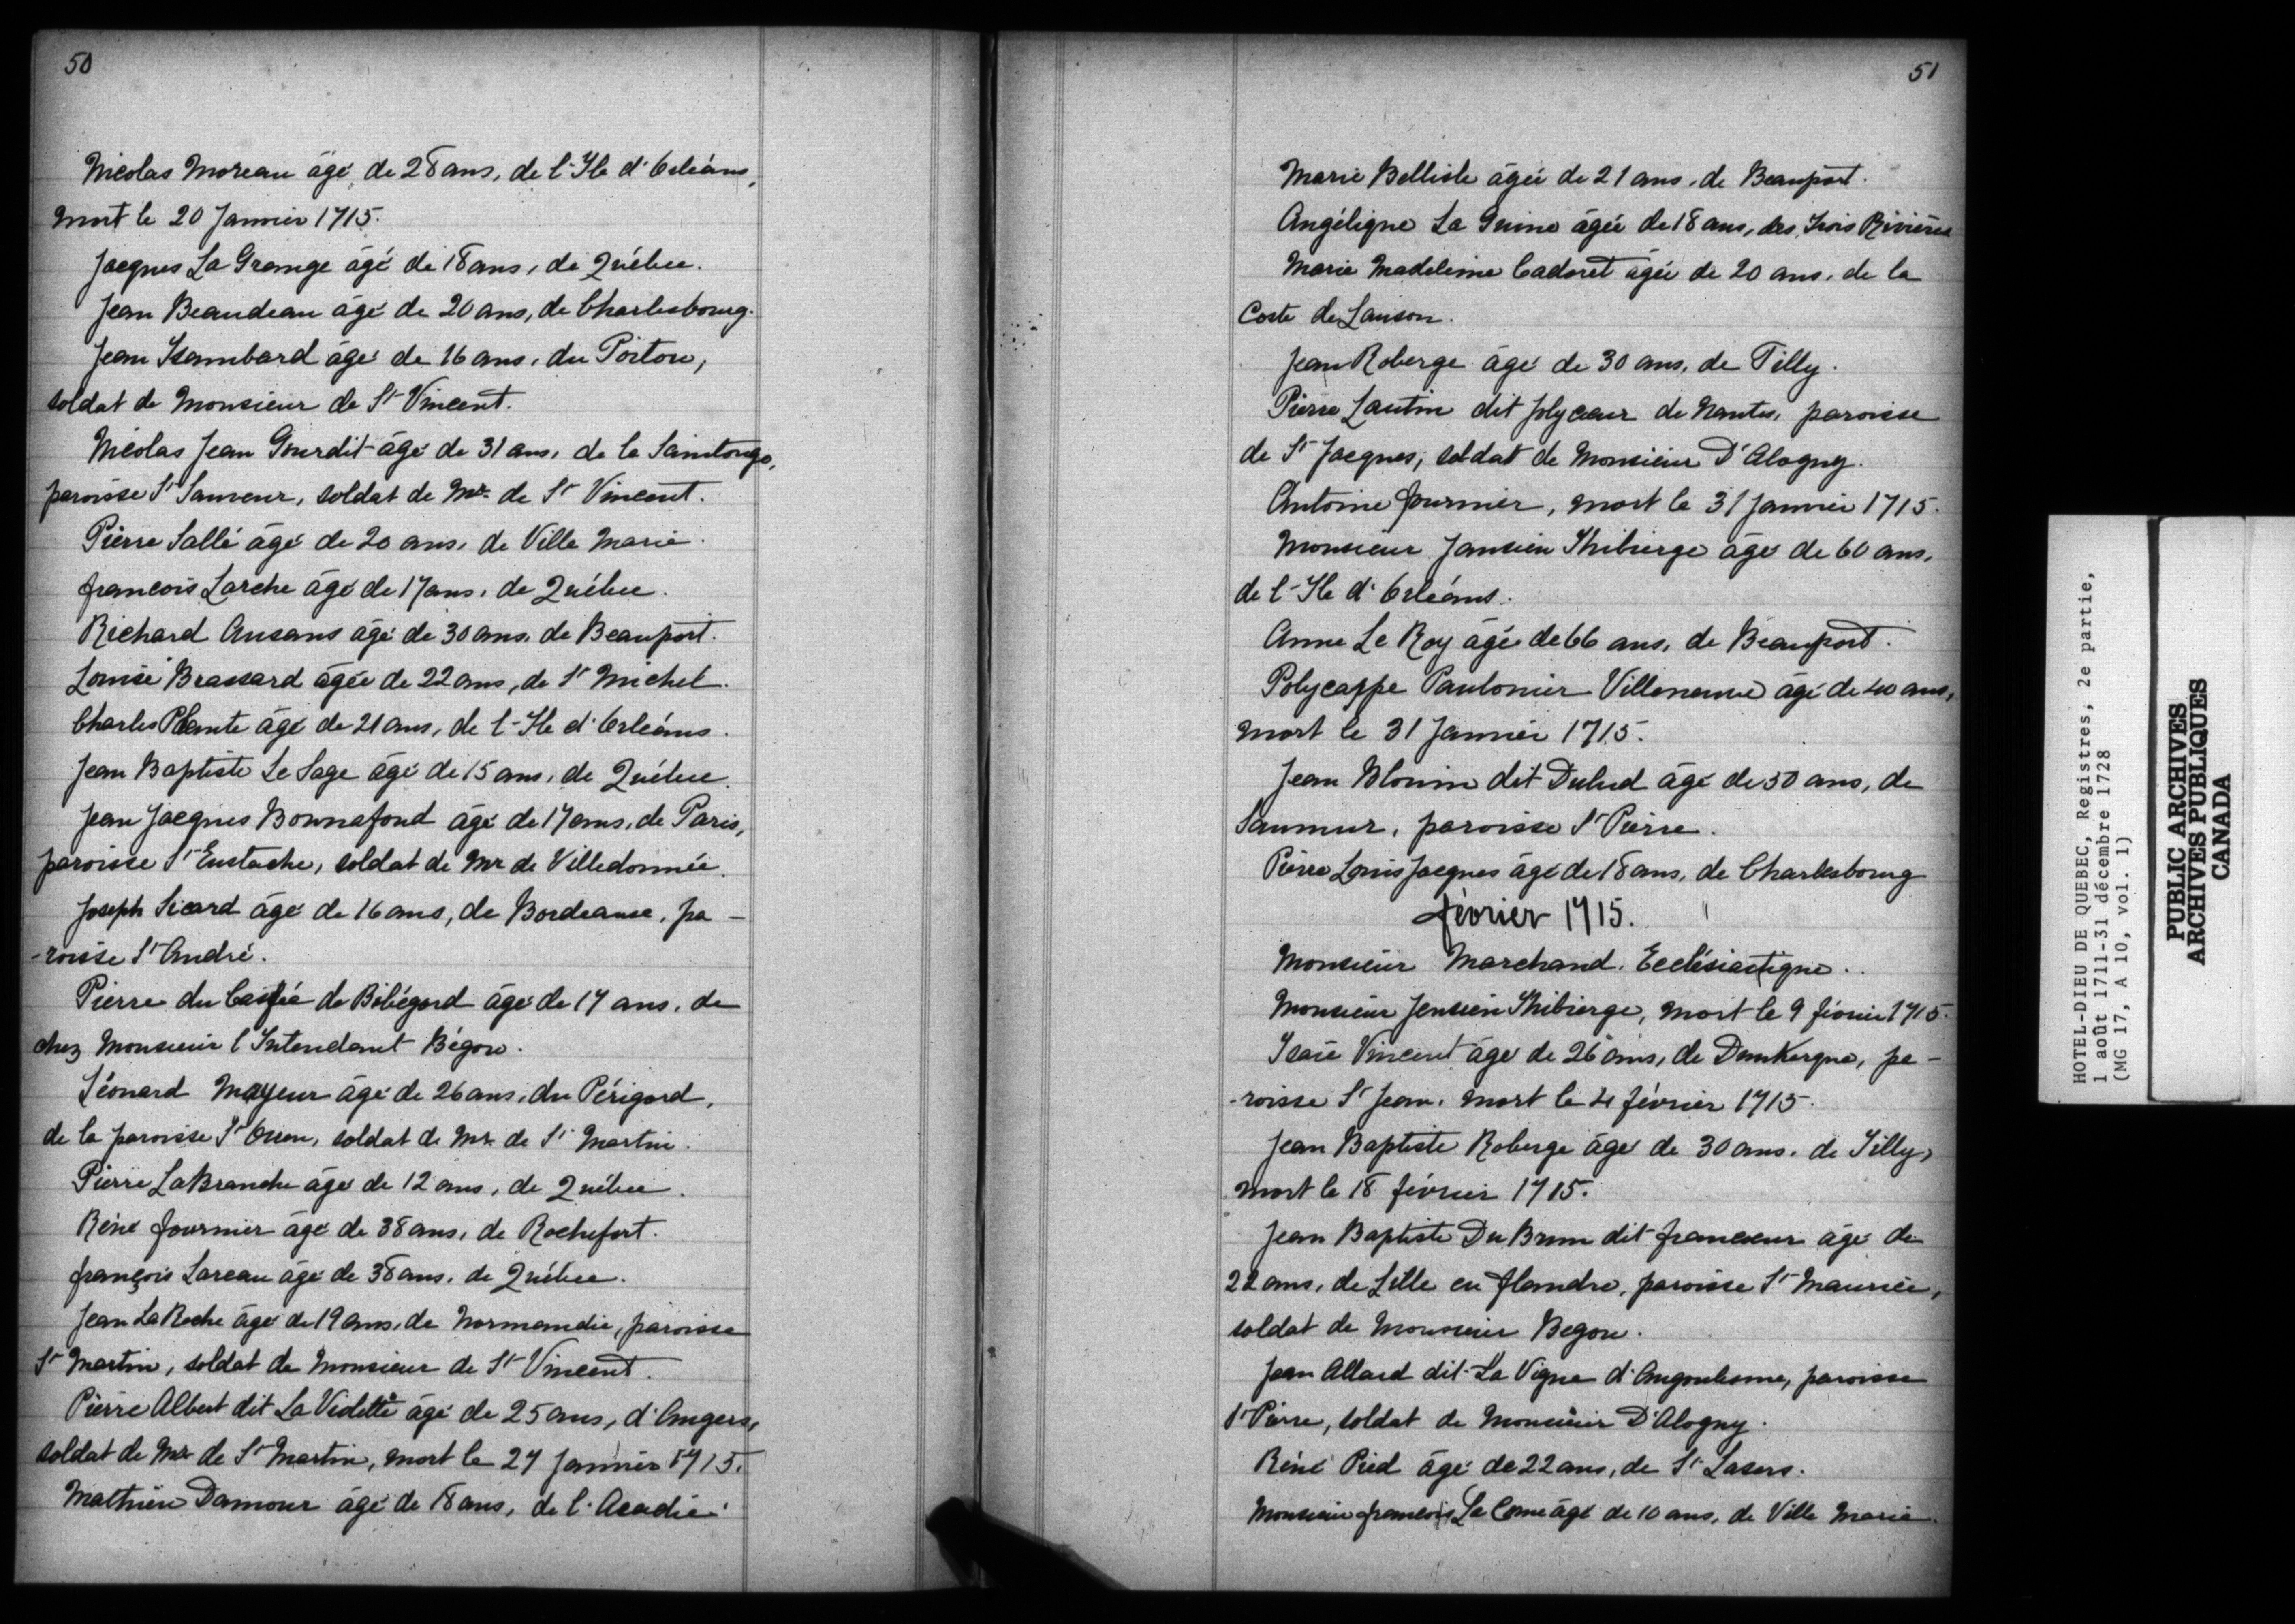 50
Nicolas Moreau âgé de 28 ans, de l'Ile d'Orléans,
mort le 20 Janvier 1715.
Jacques La Grange âgé de 18 ans, de Québec.
Jean Beaudeau âgé de 20 ans, de Charlesbourg.
Jean Isambard âgé de 16 ans, du Poitou,
soldat de Monsieur de St Vincent.
Nicolas Jean Gourdit âgé de 31 ans, de la Saintonge,
paroisse St Sauveur, soldat de Mr. de St Vincent.
Pierre Sallé âgé de 20 ans, de Ville Marie.
françois Larche âgé de 17 ans, de Québec.
Richard Ausans âgé de 30 ans, de Beauport.
Louise Brassard âgée de 22 ans, de St Michel.
Charles Plante âgé de 21 ans, de l'Ile d'Orléans.
Jean Baptiste Le Sage âgé de 15 ans, de Québec.
Jean Jacques Bonnafond âgé de 17 ans, de Paris,
paroisse St Eustache, soldat de Mr de Villedonnée.
Joseph Sicard âgé de 16 ans, de Bordeaux, pa-
-roisse St André.
Pierre du de âgé de 17 ans, de
chez Monsieur l'Intendant Bégon.
Léonard Mayeur âgé de 26 ans, du Périgord,
de la paroisse St Ouen, soldat de Mr. de St Martin.
Pierre LaBranche âgé de 12 ans, de Québec.
Réné fournier âgé de 38 ans, de Rochefort.
françois Lareau âgé de 38 ans, de Québec.
Jean LaRoche âgé de 19 ans, de Normandie, paroisse
St Martin, soldat de Monsieur de St Vincent.
Pierre Albert dit La Violette âgé de 25 ans, d'Angers,
soldat de Mr de St Martin, mort le 27 Janvier 1715.
Mathieu Damour âgé de 18 ans, de l'Acadie.
51
Marie Bellisle âgée de 21 ans, de Beauport.
Angélique La Guine âgée de 18 ans, des Trois Rivières
Marie Madeleine Cadoret âgée de 20 ans, de la
Coste de Lauson.
Jean Roberge âgé de 30 ans, de Tilly.
Pierre Lautin dit Jolycœur de Nantes, paroisse
de St Jacques, soldat de Monsieur D'Alogny.
Antoine fournier, mort le 31 Janvier 1715.
Monsieur Jansien Thibierge âgé de 60 ans,
de l'Ile d'Orléans.
Anne Le Roy âgée de 66 ans, de Beauport.
Polycappe Paulonier Villeneuve âgé de 40 ans,
mort le 31 Janvier 1715.
Jean Blouin dit Dulud âgé de 50 ans, de
Saumur, paroisse St Pierre.
Pierre Louis Jacques âgé de 18 ans, de Charlesbourg
février 1715.
Monsieur Marchand, Ecclésiastique.
Monsieur Jensien Thibierge, mort le 9 février 1715.
Isaïe Vincent âgé de 26 ans, de Dunkerque, pa-
-roisse St Jean, mort le 4 février 1715.
Jean Baptiste Roberge âgé de 30 ans, de Tilly,
mort le 18 février 1715.
Jean Baptiste Du Brun dit francœur âgé de
22 ans, de Lille en flandre, paroisse St Maurice,
soldat de Monsieur Begon.
Jean Allard dit La Vigne d'Angoulesme, paroisse
St Pierre, soldat de Monsieur D'Alogny.
Réné Pied âgé de 22 ans, de St Lasers.
Monsieur françois Le Come âgé de 10 ans, de Ville Marie.
HOTEL-DIEU DE QUEBEC, Registres, 2e partie,
1 août 1711-31 décembre 1728
(MG 17, A 10, vol. 1)
PUBLIC ARCHIVES
ARCHIVES PUBLIQUES
CANADA